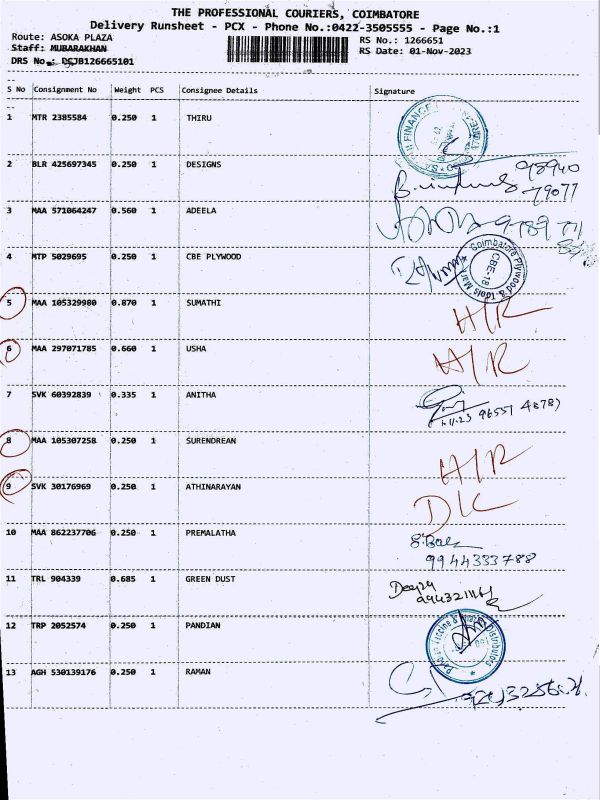 THE PROFESSIONAL COURIERS, COIMBATORE
Delivery Runsheet - PCX - Phone No.:0422-3505555 - Page No.:1
Route: ASOKA PLAZA RS No.: 1266651
Staff: MUBARAKHAN RS Date: 01-Nov-2023
DRS No.: DSJB126665101
S No Consignment No Weight PCS Consignee Details Signature
1 MTR 2385584 0.250 1 THIRU
FINANCE
2 BLR 425697345 0.250 1 DESIGNS 98940
79077
3 MAA 571064247 0.560 1 ADEELA 9789
4 MTP 5029695 0.250 1 CBE PLYWOOD
Coimbatore Plywood & CBE-18
5 MAA 105329980 0.870 1 SUMATHI H/R
6 MAA 297071785 0.660 1 USHA H/R
7 SVK 60392839 0.335 1 ANITHA
1.11.23 96557 48787
8 MAA 105307258 0.250 1 SURENDREAN H/R
9 SVK 30176969 0.250 1 ATHINARAYAN DIC
10 MAA 862237706 0.250 1 PREMALATHA
9944333788
11 TRL 904339 0.685 1 GREEN DUST
12 TRP 2052574 0.250 1 PANDIAN
Distributors
13 AGH 530139176 0.250 1 RAMAN